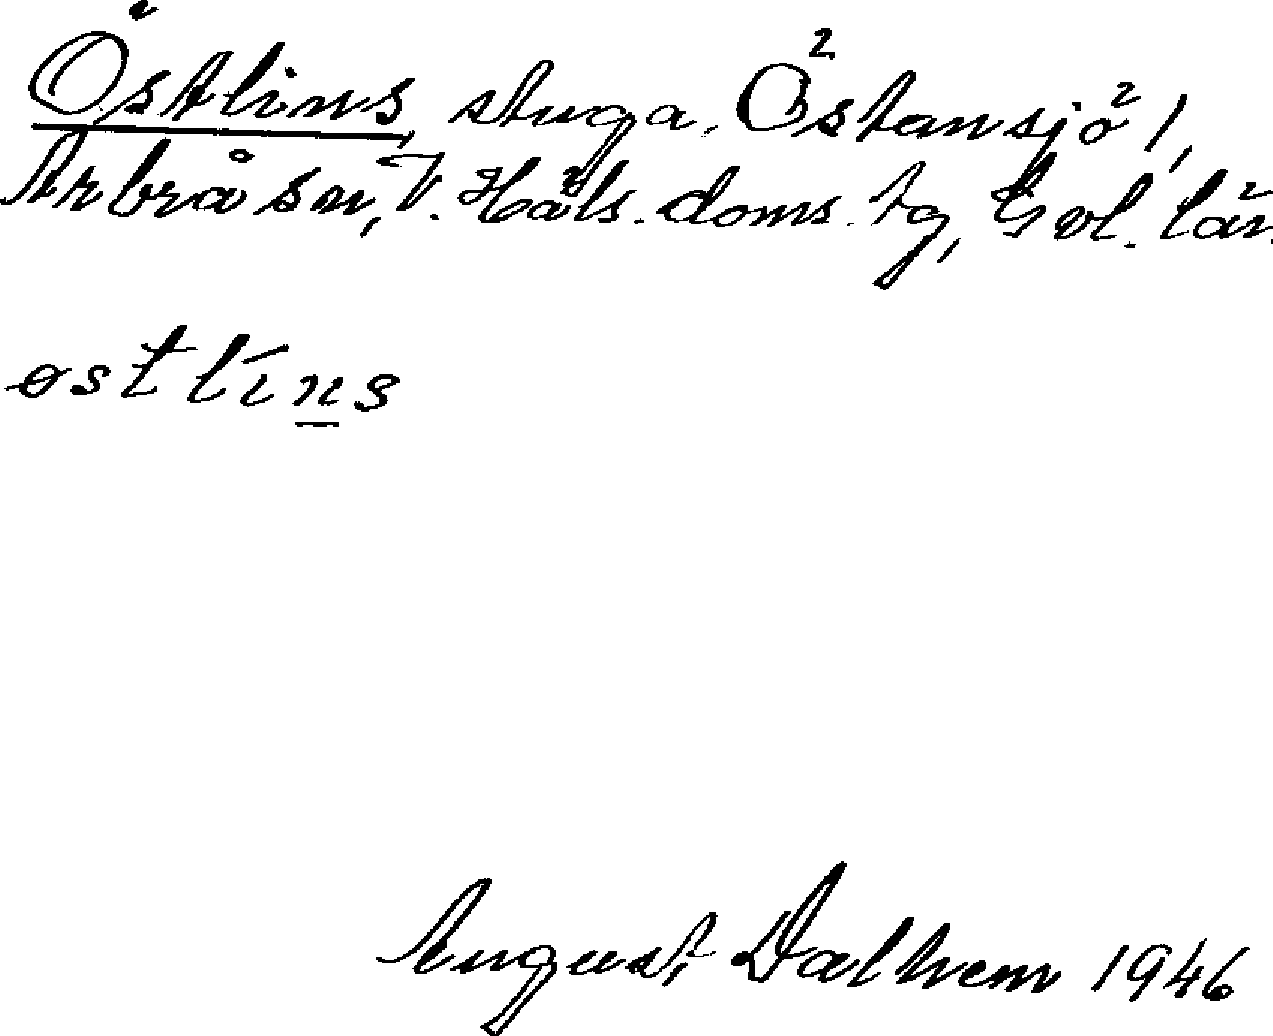 Östlins stuga, Östansjö 1,
Arbrå sn, V. Häls. doms. tg, Gvl. län.
østlíns
August Dalhem 1946